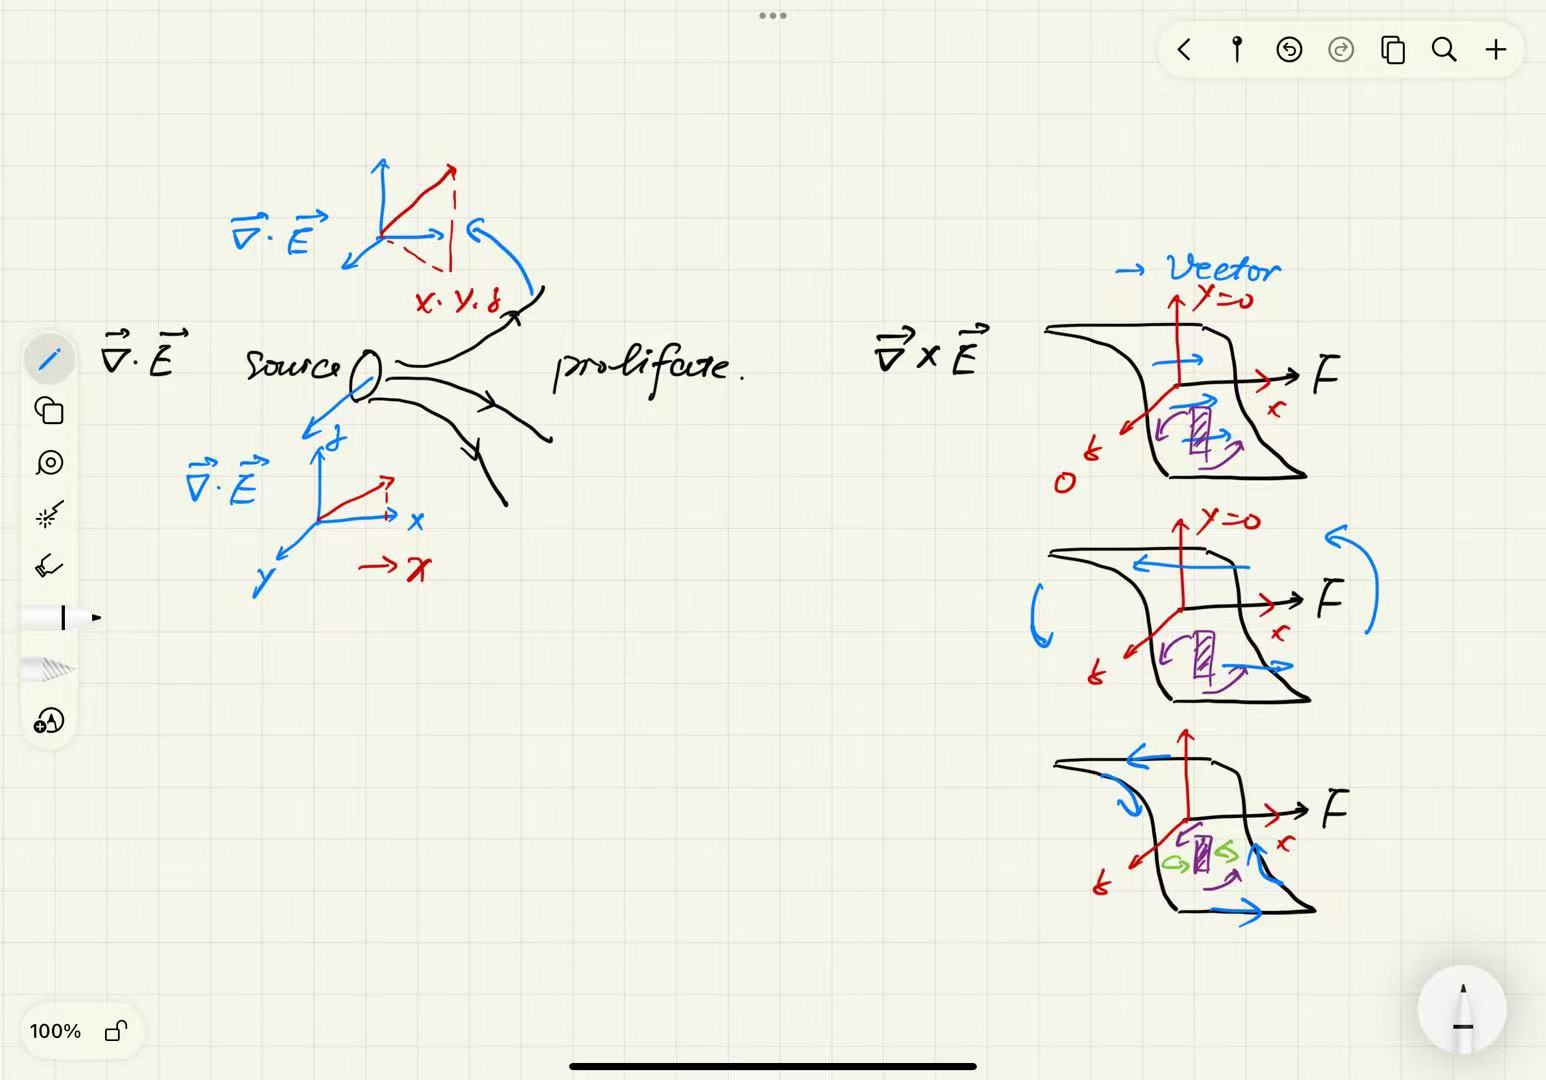 ∇⃗ · E⃗
x. y. z
∇⃗ · E⃗ source prolifate.
∇⃗ · E⃗
z
x
y
→ x
→ Vector
y=0
∇⃗ × E⃗
F
x
z
0
y=0
F
x
z
F
x
z
100%